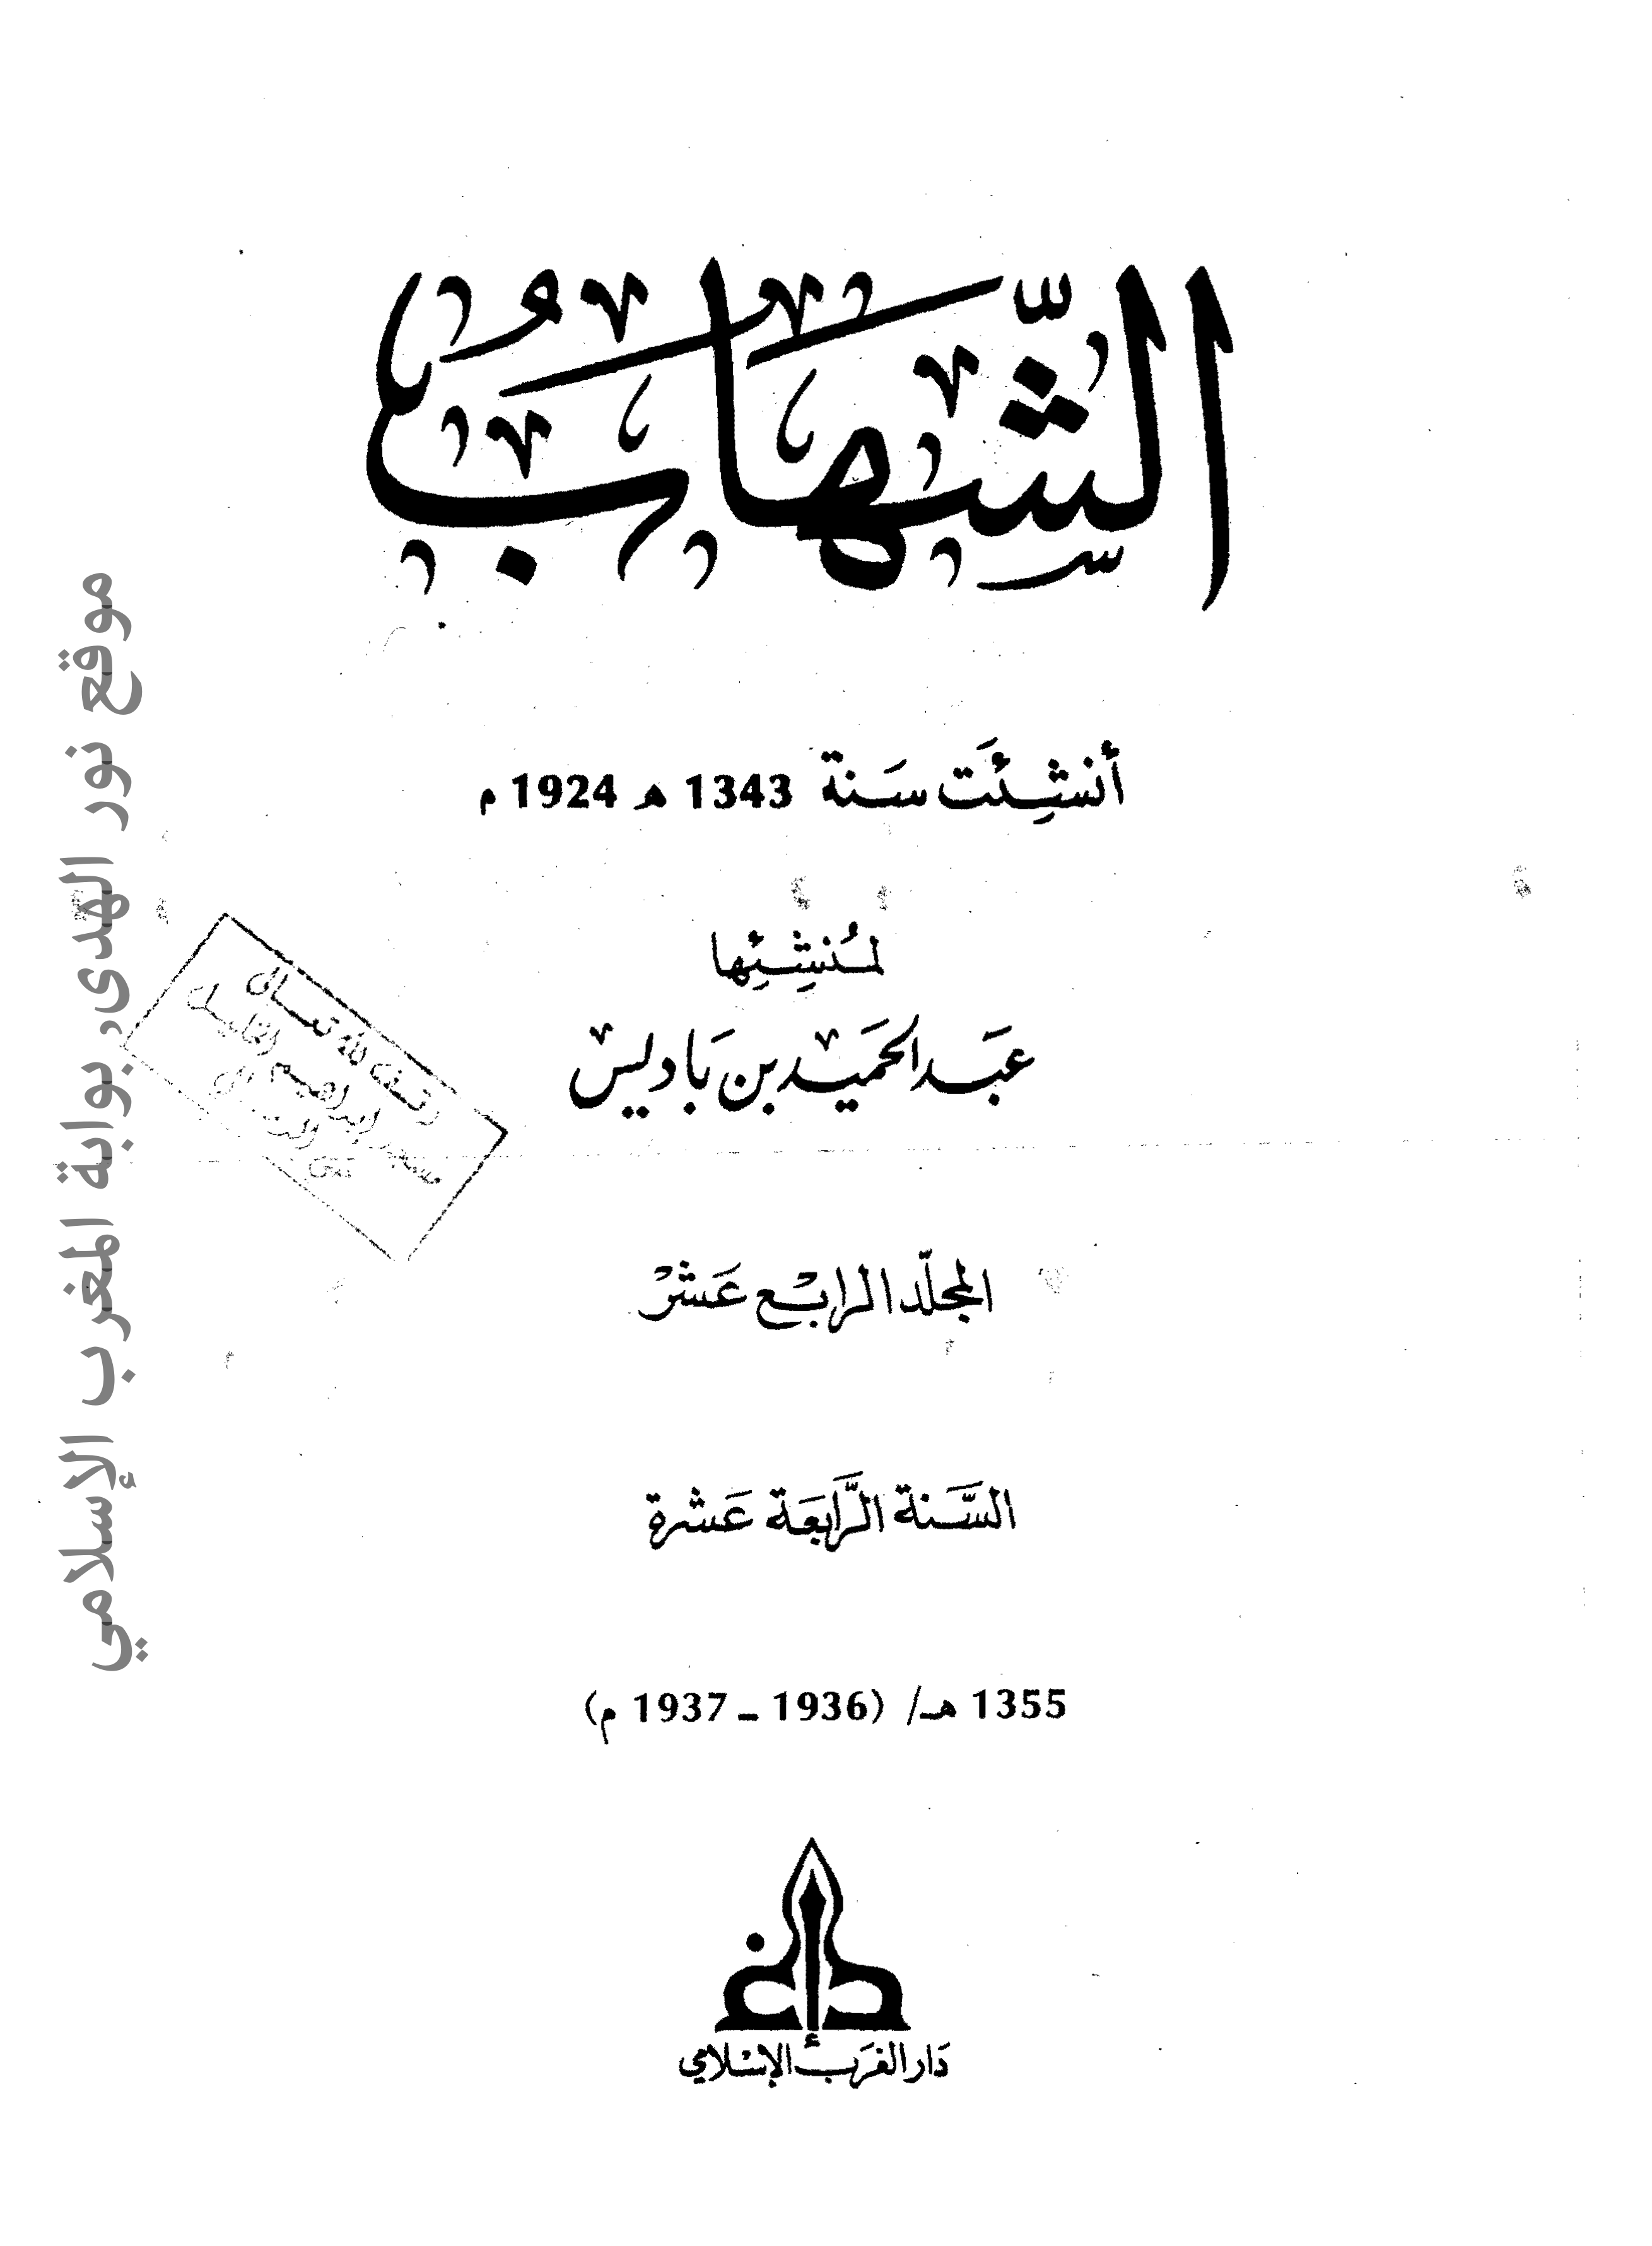 الشّهابُ
أنشِئَت سَنة 1343 ه 1924 م
لمُنشِئِها
عَبَد الحَميد بن بَاديس
المجلّد الرابع عَشرْ
السَّنة الرَّابعَة عَشرة
1355 هـ/ (1936 – 1937 م)
دَار الغَربْ الإسْلامي
موقع نور الهدى, بوابة المغرب الإسلامي
وقف لله تعالى